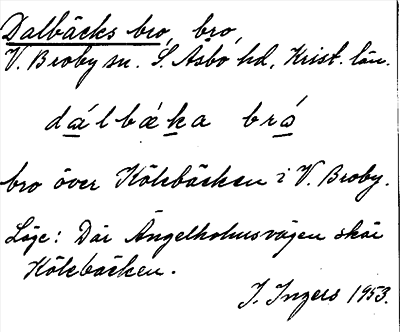 Dalbäcks bro, bro,
V. Broby sn. S. Åsbo hd, Krist. län.
dálbæka brá
bro över Kölebäcken i V. Broby.
Läge: Där Ängelholmsvägen skär
Kölebäcken.
I. Ingers 1953.